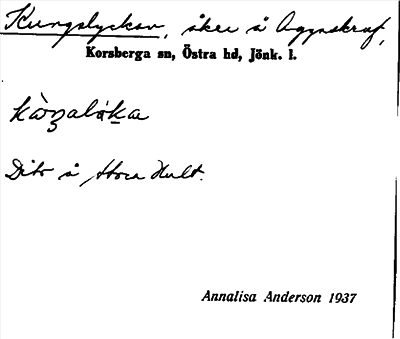 Kungslyckan, åker å Aggaskruf,
Korsberga sn, Östra hd, Jönk. l.
Dito å Stora Hult.
Annalisa Anderson 1937